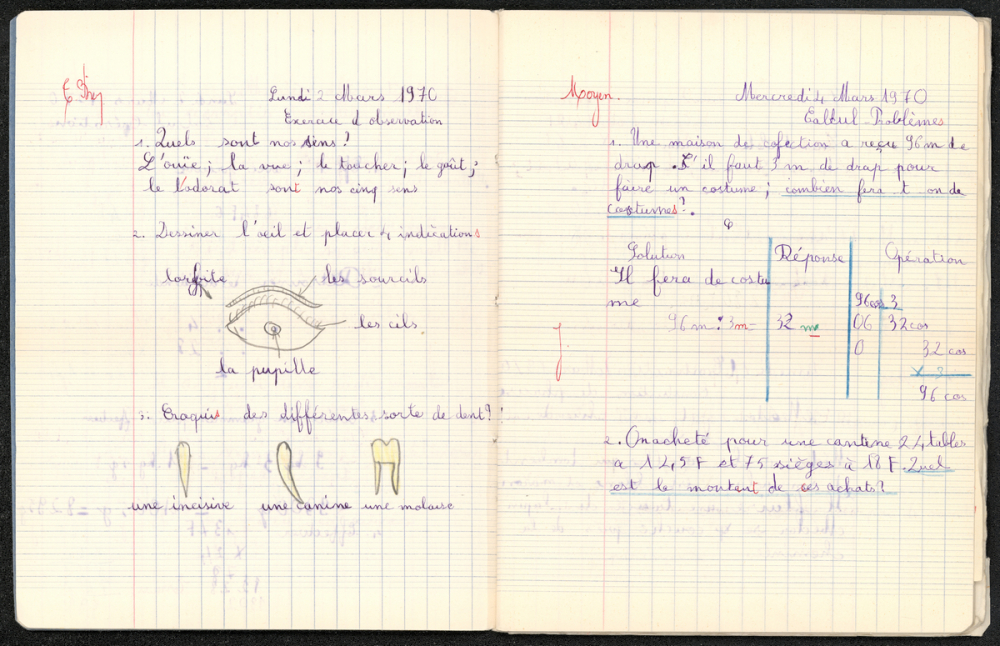 E Bien
Lundi 2 Mars 1970
Exercice d observation
1. Quels sont nos sens?
L'ouïe; la vue; le toucher; le goût;
le l'odorat sont nos cinq sens
2. Dessiner l'œil et placer 4 indications
les sourcils
les cils
la pupille
3. Croquis des différentes sorte de dent?
une incisive une canine une molaire
Moyen.
Mercredi 4 Mars 1970
Calcul Problèmes
1. Une maison de cofection a reçu 96 m de
drap. S'il faut 3 m de drap pour
faire un costume; combien fera t on de
costumes?
Solution Réponse Opération
Il fera de costu
me
96 m : 3 m = 32
96 cos 3
06 32 cos
0 32 cos
x 3
96 cos
J.
2. On acheté pour une cantine 24 tables
a 145 F et 75 sièges à 18 F. Quel
est le montent de ces achats?